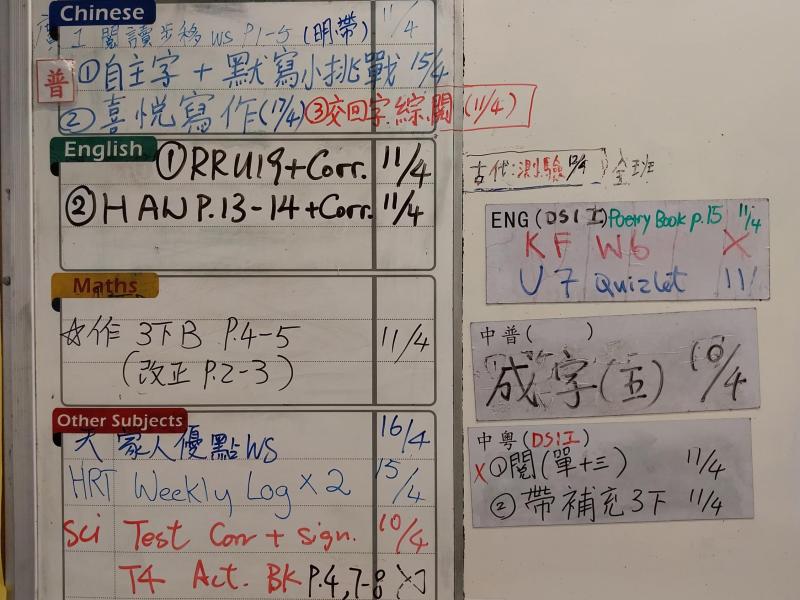 Chinese
I 閱讀步移 WS P1-5 (明帶) 11/4
普 ①自主字 + 默寫小挑戰 15/4
②喜悅寫作(17/4) ③交回字.綜.閱 (11/4)
English
①RRU19+Corr. 11/4
②HAW P.13-14+Corr. 11/4
Maths
☆作 3下B P.4-5 11/4
(改正 P.2-3)
Other Subjects
天 家人優點WS 16/4
HRT Weekly Log × 2 15/4
Sci Test Corr + sign. 10/4
T4 Act. BK P.4, 7-8
古代:測驗 全班
ENG (DSI I) Poetry Book p.15 11/4
KF W6 X
U7 Quizlet 11/
中普( )
成字(五) 10/4
中粵(DSI工)
X ①閱(單十三) 11/4
②帶補充3下 11/4